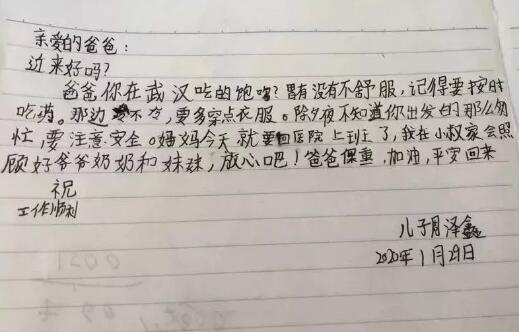 亲爱的爸爸：
近来好吗？
爸爸你在武汉吃的饱吗？胃有没有不舒服，记得要按时
吃药。那边冷不冷，要多穿点衣服。除夕夜不知道你出发的那么匆
忙，要注意安全。妈妈今天就要回医院上班了，我在小叔家会照
顾好爷爷奶奶和妹妹，放心吧！爸爸保重，加油，平安回来
祝
工作顺利
儿子周泽鑫
2020年1月29日